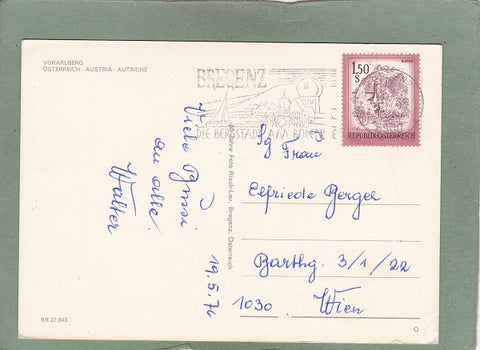 VORARLBERG
ÖSTERREICH - AUSTRIA - AUTRICHE
BREGENZ
DIE BERGSTADT AM BODEN
1.50
S
REPUBLIK ÖSTERREICH
Viele Bussi
an alle.
Walter
19.5.76
Foto Risch-Lau, Bregenz, Österreich
Sg Frau
Elfriede Berger
Barthg. 3/1/22
1030 Wien
BR 27.843